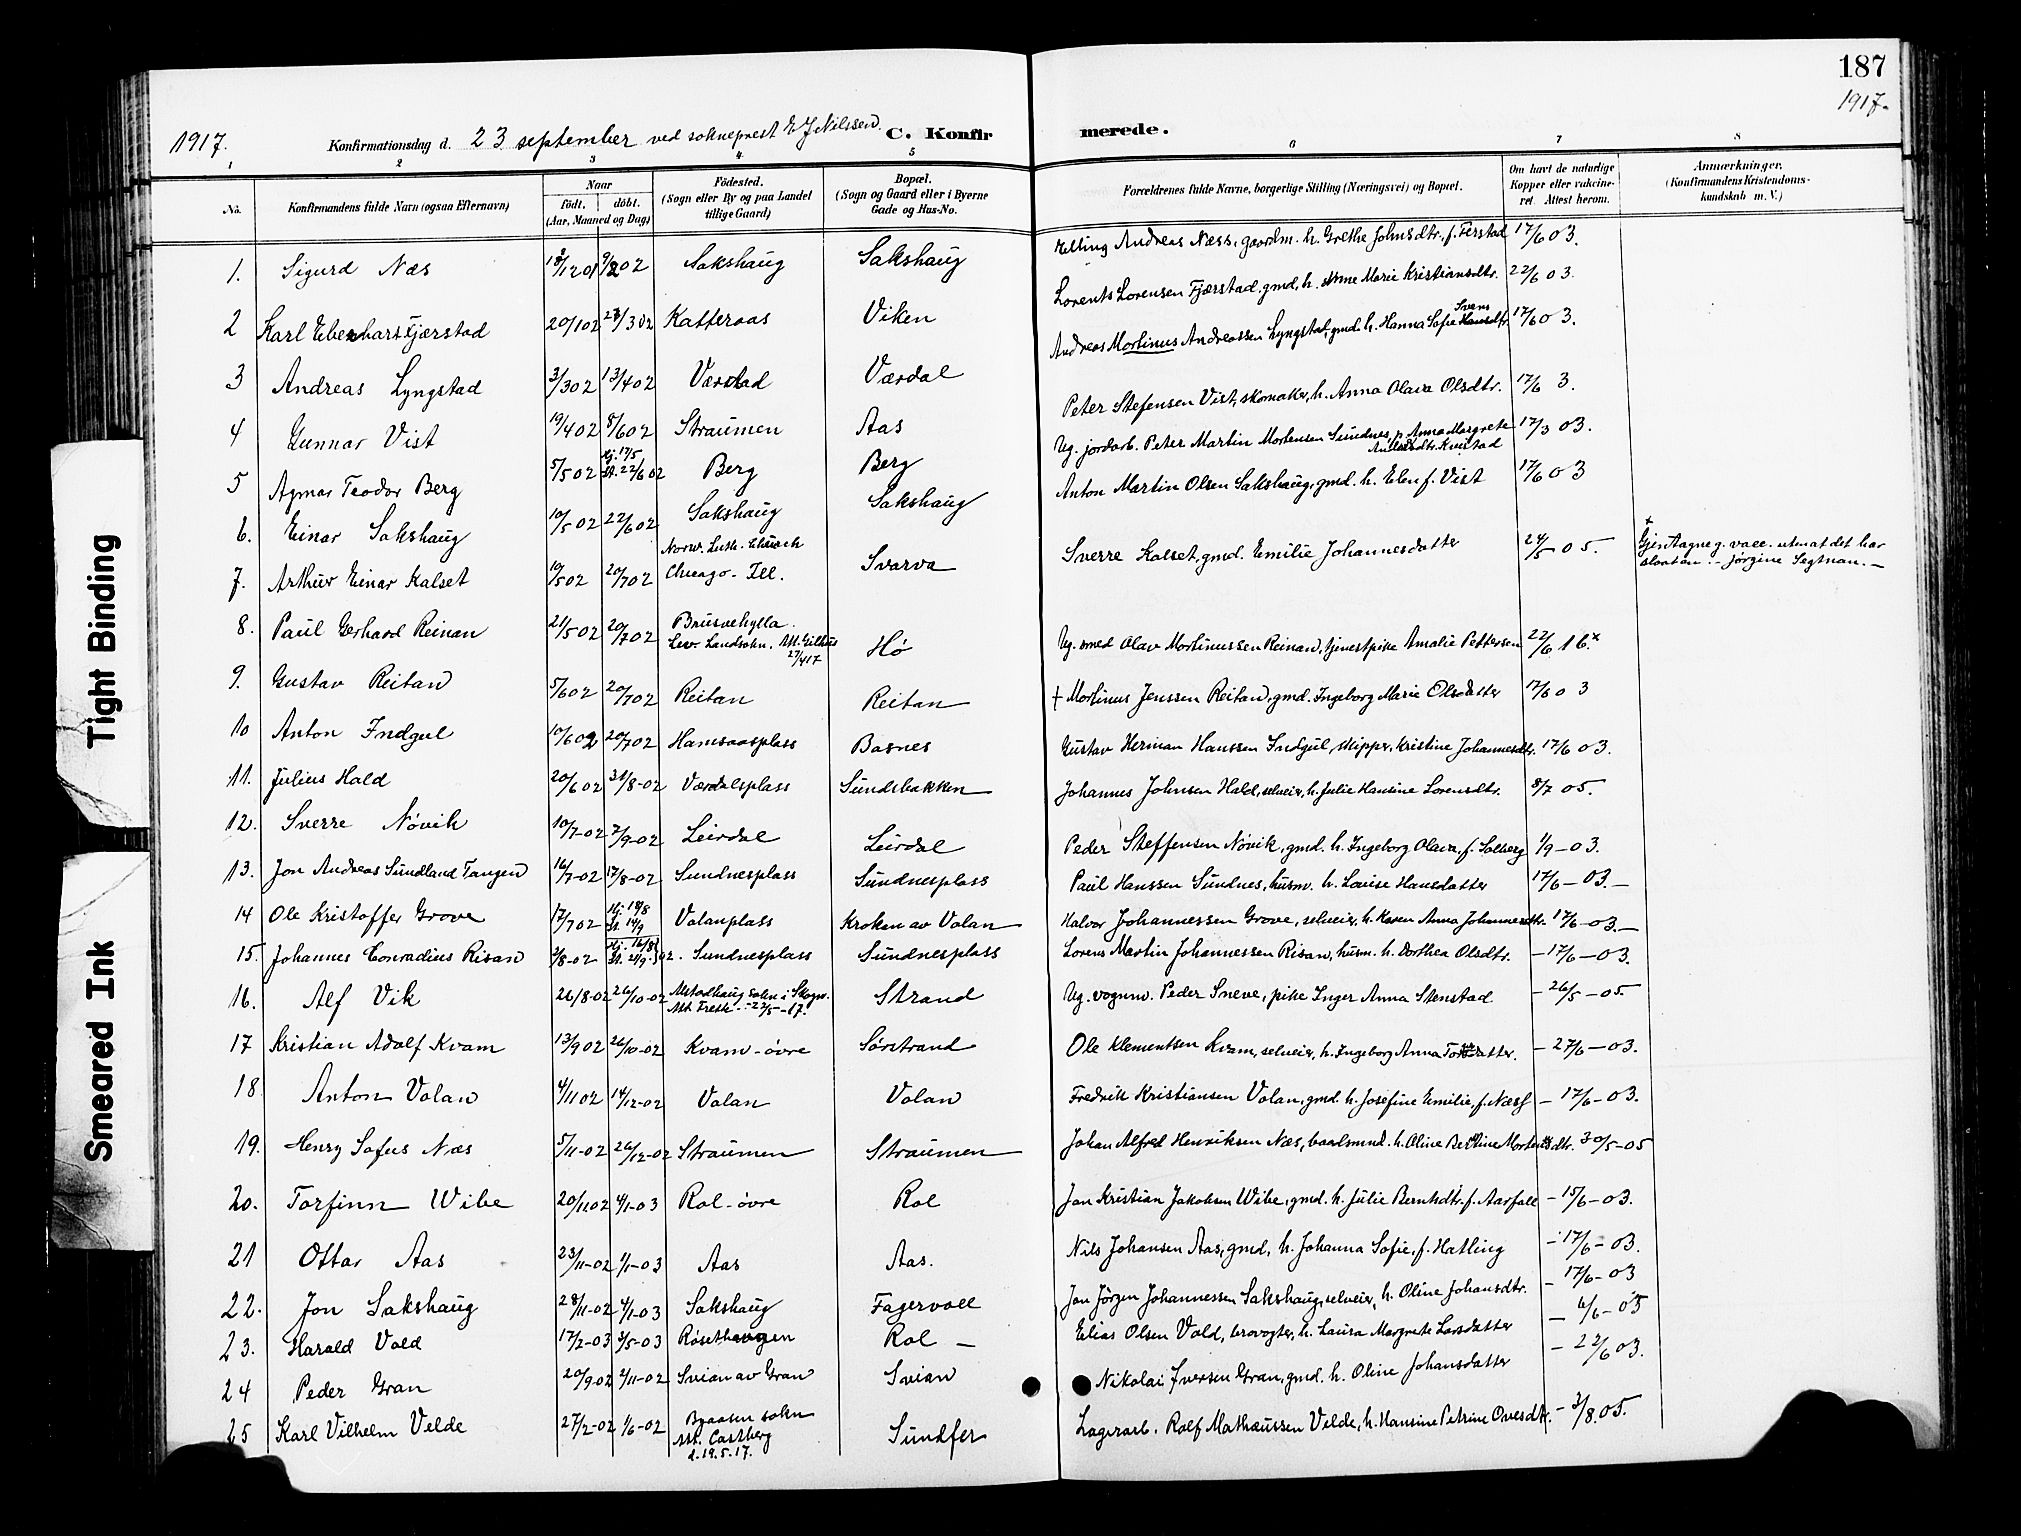 187
1917.
1917.
Konfirmationsdag d. 23 september ved sokneprest E J Nilssen. C. Konfirmerede.
1 2 3 4 5 6 7 8
No. Konfirmandens fulde Navn (ogsaa Efternavn) Naar födt. döbt. (Aar, Maaned og Dag) Födested. (Sogn eller By og paa Landet tillige Gaard) Bopæl. (Sogn og Gaard eller i Byerne Gade og Hus-No. Forældrenes fulde Navne, borgerlige Stilling (Næringsvei) og Bopæl. Om havt de naturlige Kopper eller vakcineret. Attest herom. Anmærkninger. (Konfirmandens Kristendomskundskab m. V.)
1. Sigurd Næs 18/12 01 9/2 02 Sakshaug Sakshaug Elling Andreas Næss, gaardm. h. Grethe Johnsdtr. f. Ferstad 17/6 03.
2 Karl Eberhart Fjærstad 20/1 02 23/3 02 Katteraas Viken Lorents Lorensen Fjærstad, gmd, h. Anne Marie Kristiansdtr. 22/6 03.
3 Andreas Lyngstad 3/3 02 13/4 02 Værdal Værdal Andreas Mortinus Andreassen Lyngstad, gmd. h. Hanna Sofie Svensdtr. 17/6 03.
4 Gunnar Vist 19/4 02 8/6 02 Straumen Aas Peter Stefensen Vist, skomaker, h. Anna Olava Olsdtr. 17/6 3.
5 Agmar Teodor Berg 5/5 02 Hj. 17/5 St. 22/6 02 Berg Berg Ug. jordarb. Peter Martin Mortensen Sundnes, p. Anna Margrete Andersdtr. Kvistad 17/3 03.
6. Einar Sakshaug 10/5 02 22/6 02 Sakshaug Sakshaug Anton Martin Olsen Sakshaug, gmd. h. Elen f. Vist 17/6 03
7. Arthur Einar Kalset 10/5 02 20/7 02 Norw. Luth. Church Chicago. Ill. Svarva Sverre Kalset, gmd. Emilie Johannesdatter 24/5 05. x Gjentagne g. vacc. uten at det har slaat an. - Jørgine Segtnan. -
8. Paul Gerhard Reinan 21/5 02 20/7 02 Brusvehylla. Lev. Landsokn. Att. Gilhus 27/4 17 Hø Ug. smed Olav Mortinussen Reinan, tjenestpike Amalie Pettersen 22/6 16.x
9. Gustav Reitan 5/6 02 20/7 02 Reitan Reitan + Mortinus Jenssen Reitan, gmd. Ingeborg Marie Olsdatter 17/6 03
10 Anton Indgul 10/6 02 20/7 02 Hamsaasplass Basnes Gustav Herman Hanssen Indgul, skipper, Kristine Johannesdtr. 17/6 03.
11. Julius Hald 20/6 02 31/8-02 Værdalsplass Sundsbakken Johannes Johnsen Hald, selveier, h. Julie Hansine Lorensdtr. 8/7 05.
12. Sverre Nøvik 10/7-02 7/9-02 Leirdal Leirdal Peder Steffensen Nøvik, gmd. h. Ingeborg Olava, f. Solberg 1/9-03.
13. Jon Andreas Sundland Tangen 16/7-02 17/8-02 Sundnesplass Sundnesplass Paul Hanssen Sundnes, husm. h. Louise Hansdatter 17/6-03.-
14 Ole Kristoffer Grove 17/7 02 Hj. 18/8 St. 14/9 Volanplass Kroken av Volan Halvor Johannessen Grove, selveier, h. Karen Anna Johannesdtr. 17/6-03.-
15. Johannes Conradius Risan 2/8-02 Hj. 16/8 St. 21/9 02. Sundnesplass Sundnesplass Lorens Martin Johannessen Risan, husm. h. Dorthea Olsdtr. -17/6-03.
16. Alf Vik 26/8-02 26/10-02 Alstadhaug sokn i Skogn. Att. Freth - 22/5-17. Strand Ug. vognm. Peder Sneve, pike Inger Anna Stenstad -26/5-05.
17 Kristian Adolf Kvam 13/9 02 26/10-02 Kvam-övre Sørstrand Ole Klementsen Kvam, selveier, h. Ingeborg Anna -27/6-03.
18. Anton Volan 4/11 02 14/12-02 Volan Volan Fredrik Kristiansen Volan, gmd. h. Josefine Emilie, f. Næss -17/6-03.
19. Henry Sofus Næs 5/11-02 26/12-02 Straumen Straumen Johan Alfred Henriksen Næs, baatsmnd. h. Oline Bertine Mortensdtr. 30/5-05
20. Torfinn Wibe 20/11 02 4/1-03 Rol-övre Rol Jon Kristian Jakobsen Wibe, gmd. h. Julie Berntsdtr. f. Aarfall -15/6-03.
21 Ottar Aas 23/11-02 4/1-03 Aas Aas. Nils Johansen Aas, gmd, h. Johanna Sofie, f. Hatling -17/6-03.
22. Jon Sakshaug 28/11-02 4/1-03 Sakshaug Fagervoll Jon Jörgen Johannessen Sakshaug, selveier, h. Oline Johansdtr. -17/6-03
23. Harald Vold 17/2-03 3/5-03 Røsethaugen Rol - Elias Olsen Vold, brovogter, h. Laura Margrete Larsdatter -6/6-05
24 Peder Gran 20/9 02 2/11-02 Svian av Gran Svian Nikolai Iversen Gran, gmd. h. Oline Johansdatter -22/6 03.
25 Karl Vilhelm Velde 27/2-02 1/6-02 sokn Att. Castberg d. 19.5.17. Sundfer Lagerarb. Rolf Mathæussen Velde, h. Hansine Petrine Ovesdtr. -3/8.05.
Tight Binding
Smeared Ink